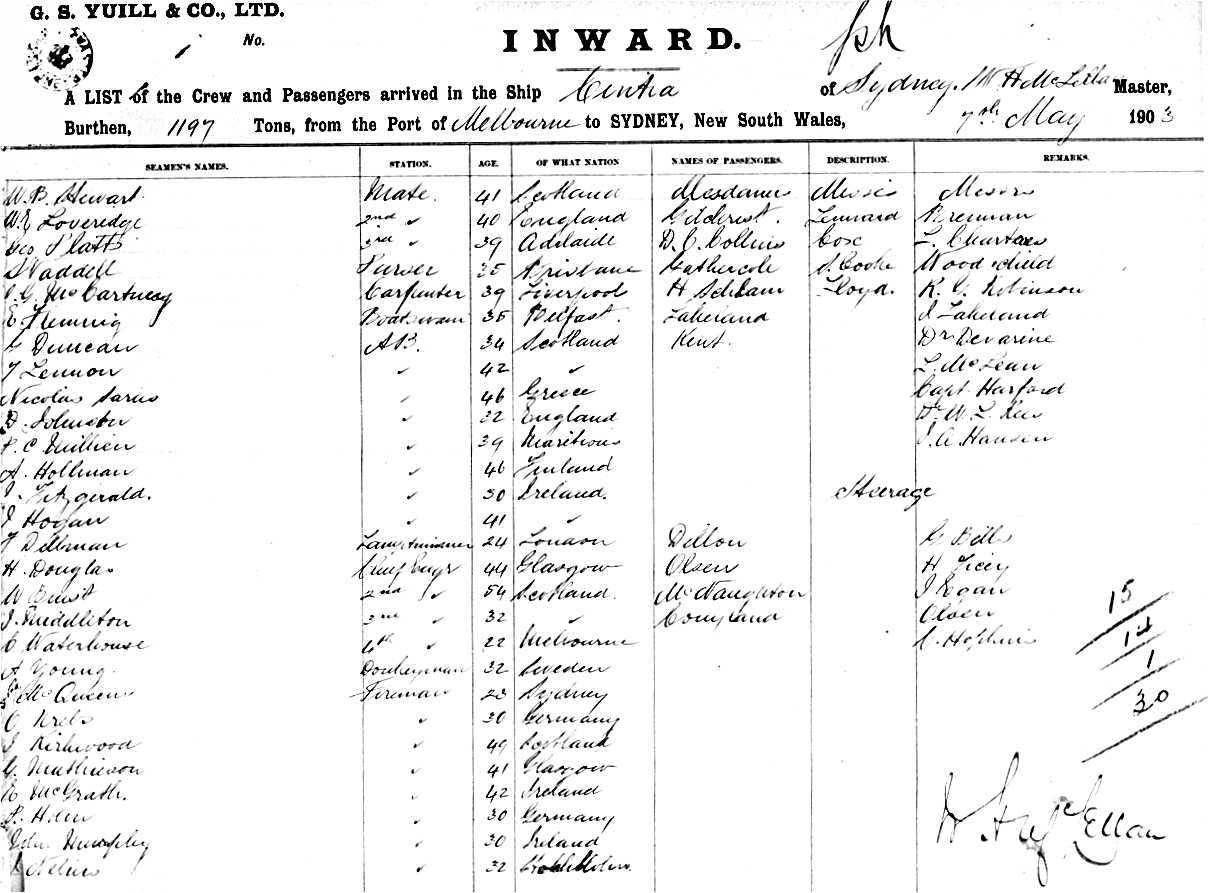 G. S. YUILL & CO., LTD.
No. 1
INWARD.
A LIST of the Crew and Passengers arrived in the Ship Cintra of Sydney. Master,
Burthen, 1197 Tons, from the Port of Melbourne to SYDNEY, New South Wales, 7th May 1903
SEAMEN'S NAMES. STATION. AGE. OF WHAT NATION NAMES OF PASSENGERS. DESCRIPTION. REMARKS.
W. B. Stewart. Mate. 41 Scotland Mesdames Misses Messrs
W. E Loveredge 2nd " 40 England Gilchrist. Lennard Brennan
Geo Platts 3rd " 39 Adelaide D. C. Collins Cox L. Charteres
Waddell Purser 35 Brisbane Gathercole S. Cooke Wood & child
McCartney Carpenter 39 Liverpool H Lloyd. R. Robinson
E. Fleming Boatswain 35 Belfast. Lakeland J Lakeland
Duncan AB. 34 Scotland Kent. Dr Devarine
T Lennon " 42 " L. McLean
Nicolas " 46 Greece Capt. Harford
D. Johnston " 32 England Dr W. L.
P. C Millien " 39 Maritious J. A. Hansen
A. Hollman " 46 Finland
J. Fitzgerald. " 30 Ireland. Steerage
J Hogan " 41 "
T Dillman Lamptrimmer 24 London Dillon G Bills
H. Douglas Chief Engr 44 Glasgow Olsen H
W 2nd " 54 Scotland. McNaughton J Hogan
J. Middleton 3rd " 32 " Olsen
C Waterhouse 4th " 22 Melbourne Hopkins
A Young. Donkeyman 32 Sweden
McQueen Fireman 23 Sydney
C Krebs " 30 Germany
J Kirkwood " 49 Scotland
G. Mathieson " 41 Glasgow
McGrath. " 42 Ireland
" 30 Germany
John " 30 Ireland
" 32
15
14
1
30